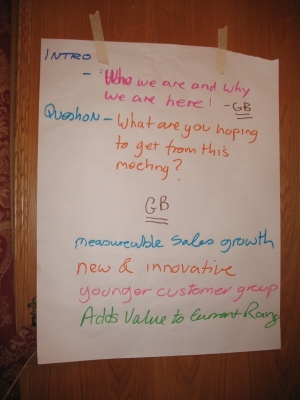 INTRO
- Who we are and why
we are here! - GB
Question - What are you hoping
to get from this
meeting?
GB
measureable sales growth
new & innovative
younger customer group
Adds Value to Current Rang